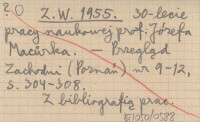 ?
Z. W. 1955. 30-lecie
pracy naukowej prof. Józefa
Maćurka. — Przegląd
Zachodni (Poznań) nr 9-12,
s. 304-308.
Z bibliografią prac.